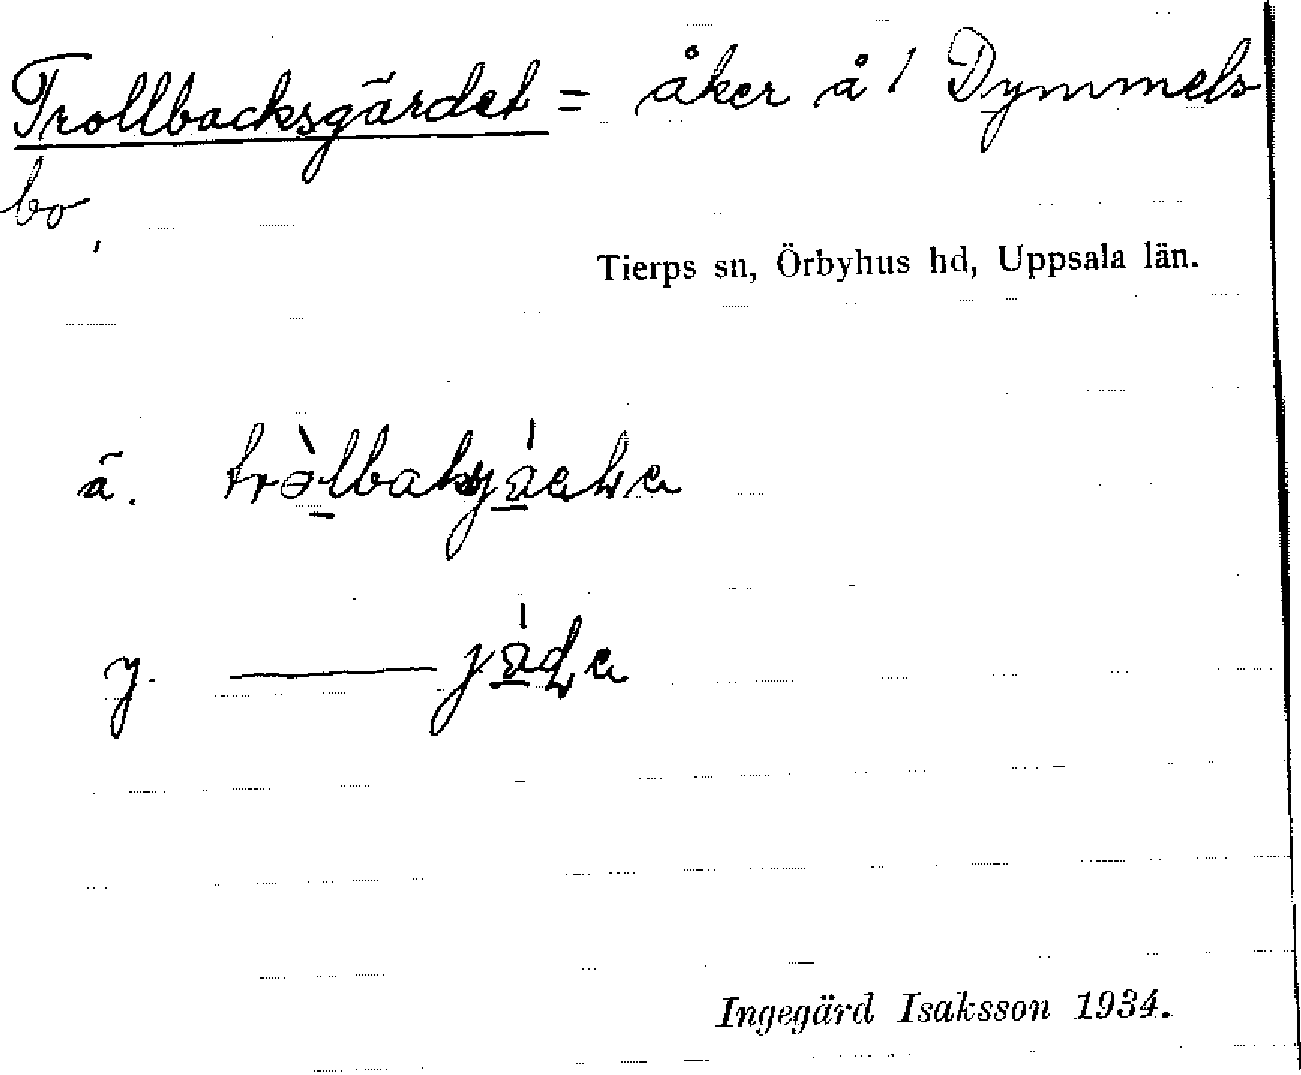 Trollbacksgärdet = åker å 1 Dymmels
bo,
Tierps sn, Örbyhus hd, Uppsala län.
ä.
y.
Ingegärd Isaksson 1934.